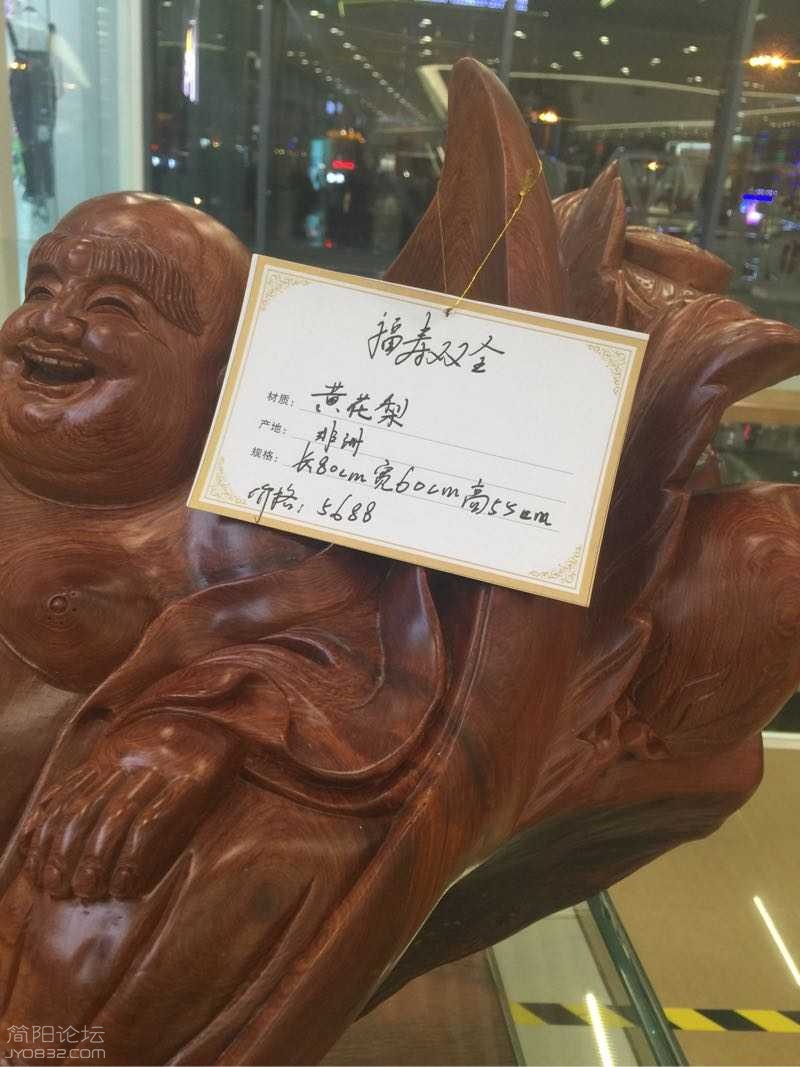 福寿双全
材质：黄花梨
产地：非洲
规格：长80cm宽60cm高55cm
价格：5688
简阳论坛
JY0832.com